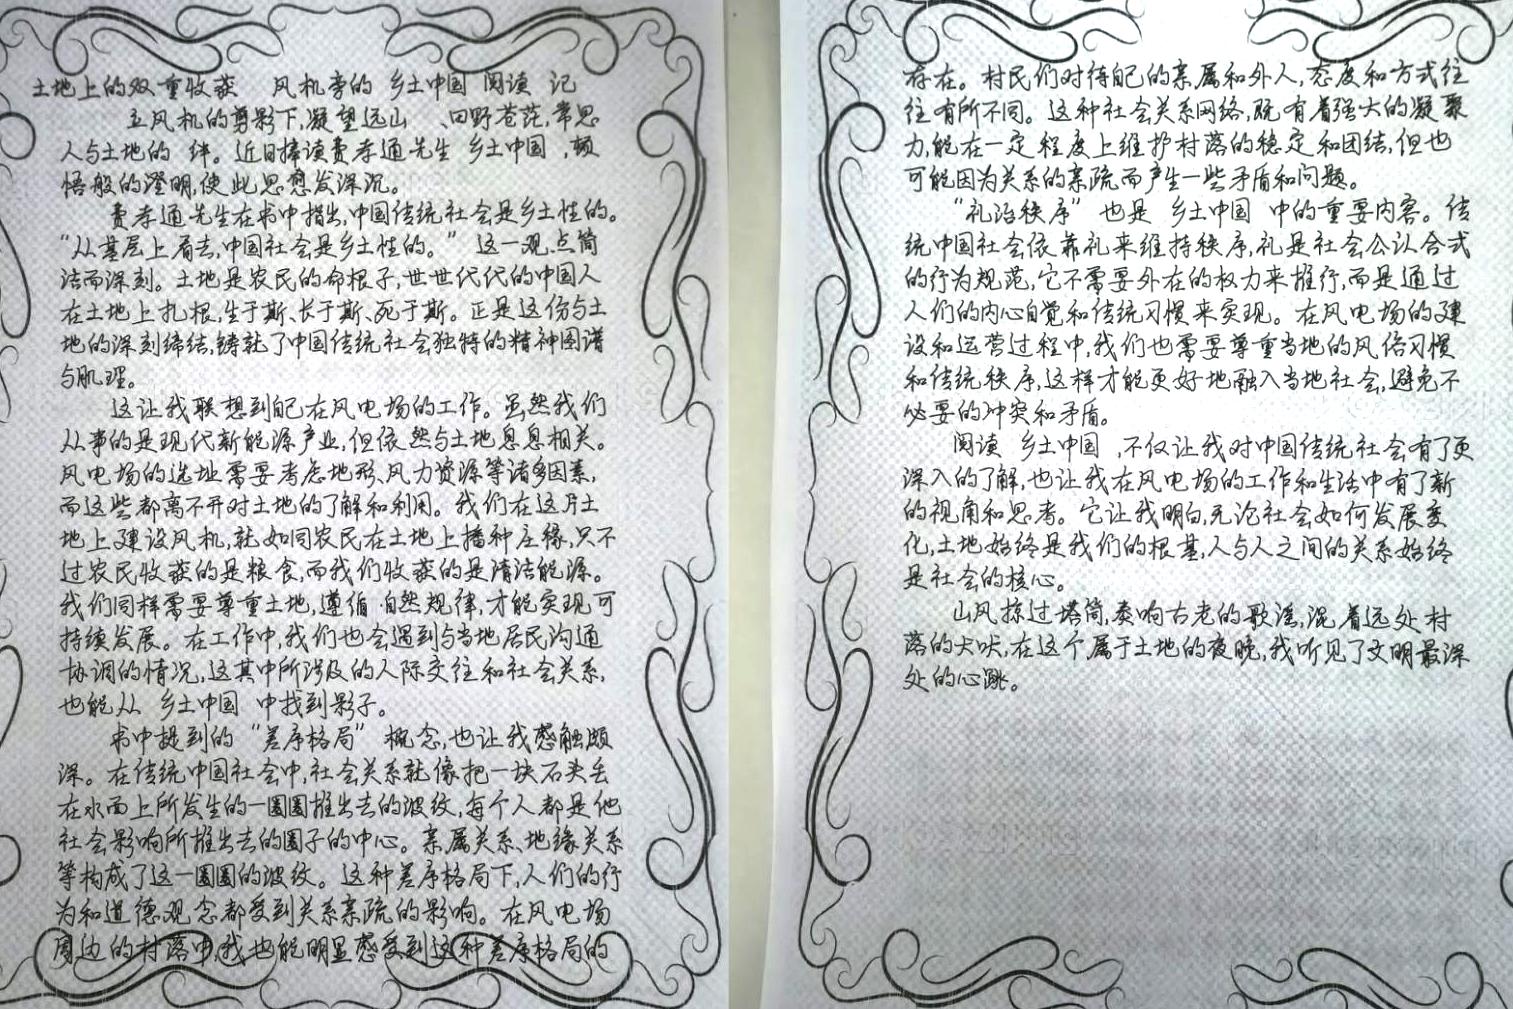 土地上的双重收获 风机旁的 乡土中国 阅读 记
立风机的剪影下,凝望远山 、田野苍茫,常思
人与土地的 绊。近日捧读费孝通先生 乡土中国 ,顿
悟般的澄明,使此思愈发深沉。
费孝通先生在书中指出,中国传统社会是乡土性的。
“从基层上看去,中国社会是乡土性的。” 这一观点简
洁而深刻。土地是农民的命根子,世世代代的中国人
在土地上扎根,生于斯、长于斯、死于斯。正是这份与土
地的深刻缔结,铸就了中国传统社会独特的精神图谱
与肌理。
这让我联想到自己在风电场的工作。虽然我们
从事的是现代新能源产业,但依然与土地息息相关。
风电场的选址需要考虑地形、风力资源等诸多因素,
而这些都离不开对土地的了解和利用。我们在这片土
地上建设风机,就如同农民在土地上播种庄稼,只不
过农民收获的是粮食,而我们收获的是清洁能源。
我们同样需要尊重土地,遵循自然规律,才能实现可
持续发展。在工作中,我们也会遇到与当地居民沟通
协调的情况,这其中所涉及的人际交往和社会关系,
也能从 乡土中国 中找到影子。
书中提到的“差序格局”概念,也让我感触颇
深。在传统中国社会中,社会关系就像把一块石头丢
在水面上所发生的一圈圈推出去的波纹,每个人都是他
社会影响所推出去的圈子的中心。亲属关系、地缘关系
等构成了这一圈圈的波纹。这种差序格局下,人们的行
为和道德观念都受到关系亲疏的影响。在风电场
周边的村落中,我也能明显感受到这种差序格局的
存在。村民们对待自己的亲属和外人,态度和方式往
往有所不同。这种社会关系网络,既有着强大的凝聚
力,能在一定程度上维护村落的稳定和团结,但也
可能因为关系的亲疏而产生一些矛盾和问题。
“礼治秩序”也是 乡土中国 中的重要内容。传
统中国社会依靠礼来维持秩序,礼是社会公认合式
的行为规范,它不需要外在的权力来推行,而是通过
人们的内心自觉和传统习惯来实现。在风电场的建
设和运营过程中,我们也需要尊重当地的风俗习惯
和传统秩序,这样才能更好地融入当地社会,避免不
必要的冲突和矛盾。
阅读 乡土中国 ,不仅让我对中国传统社会有了更
深入的了解,也让我在风电场的工作和生活中有了新
的视角和思考。它让我明白,无论社会如何发展变
化,土地始终是我们的根基,人与人之间的关系始终
是社会的核心。
山风掠过塔筒,奏响古老的歌谣,混着远处村
落的犬吠,在这个属于土地的夜晚,我听见了文明最深
处的心跳。